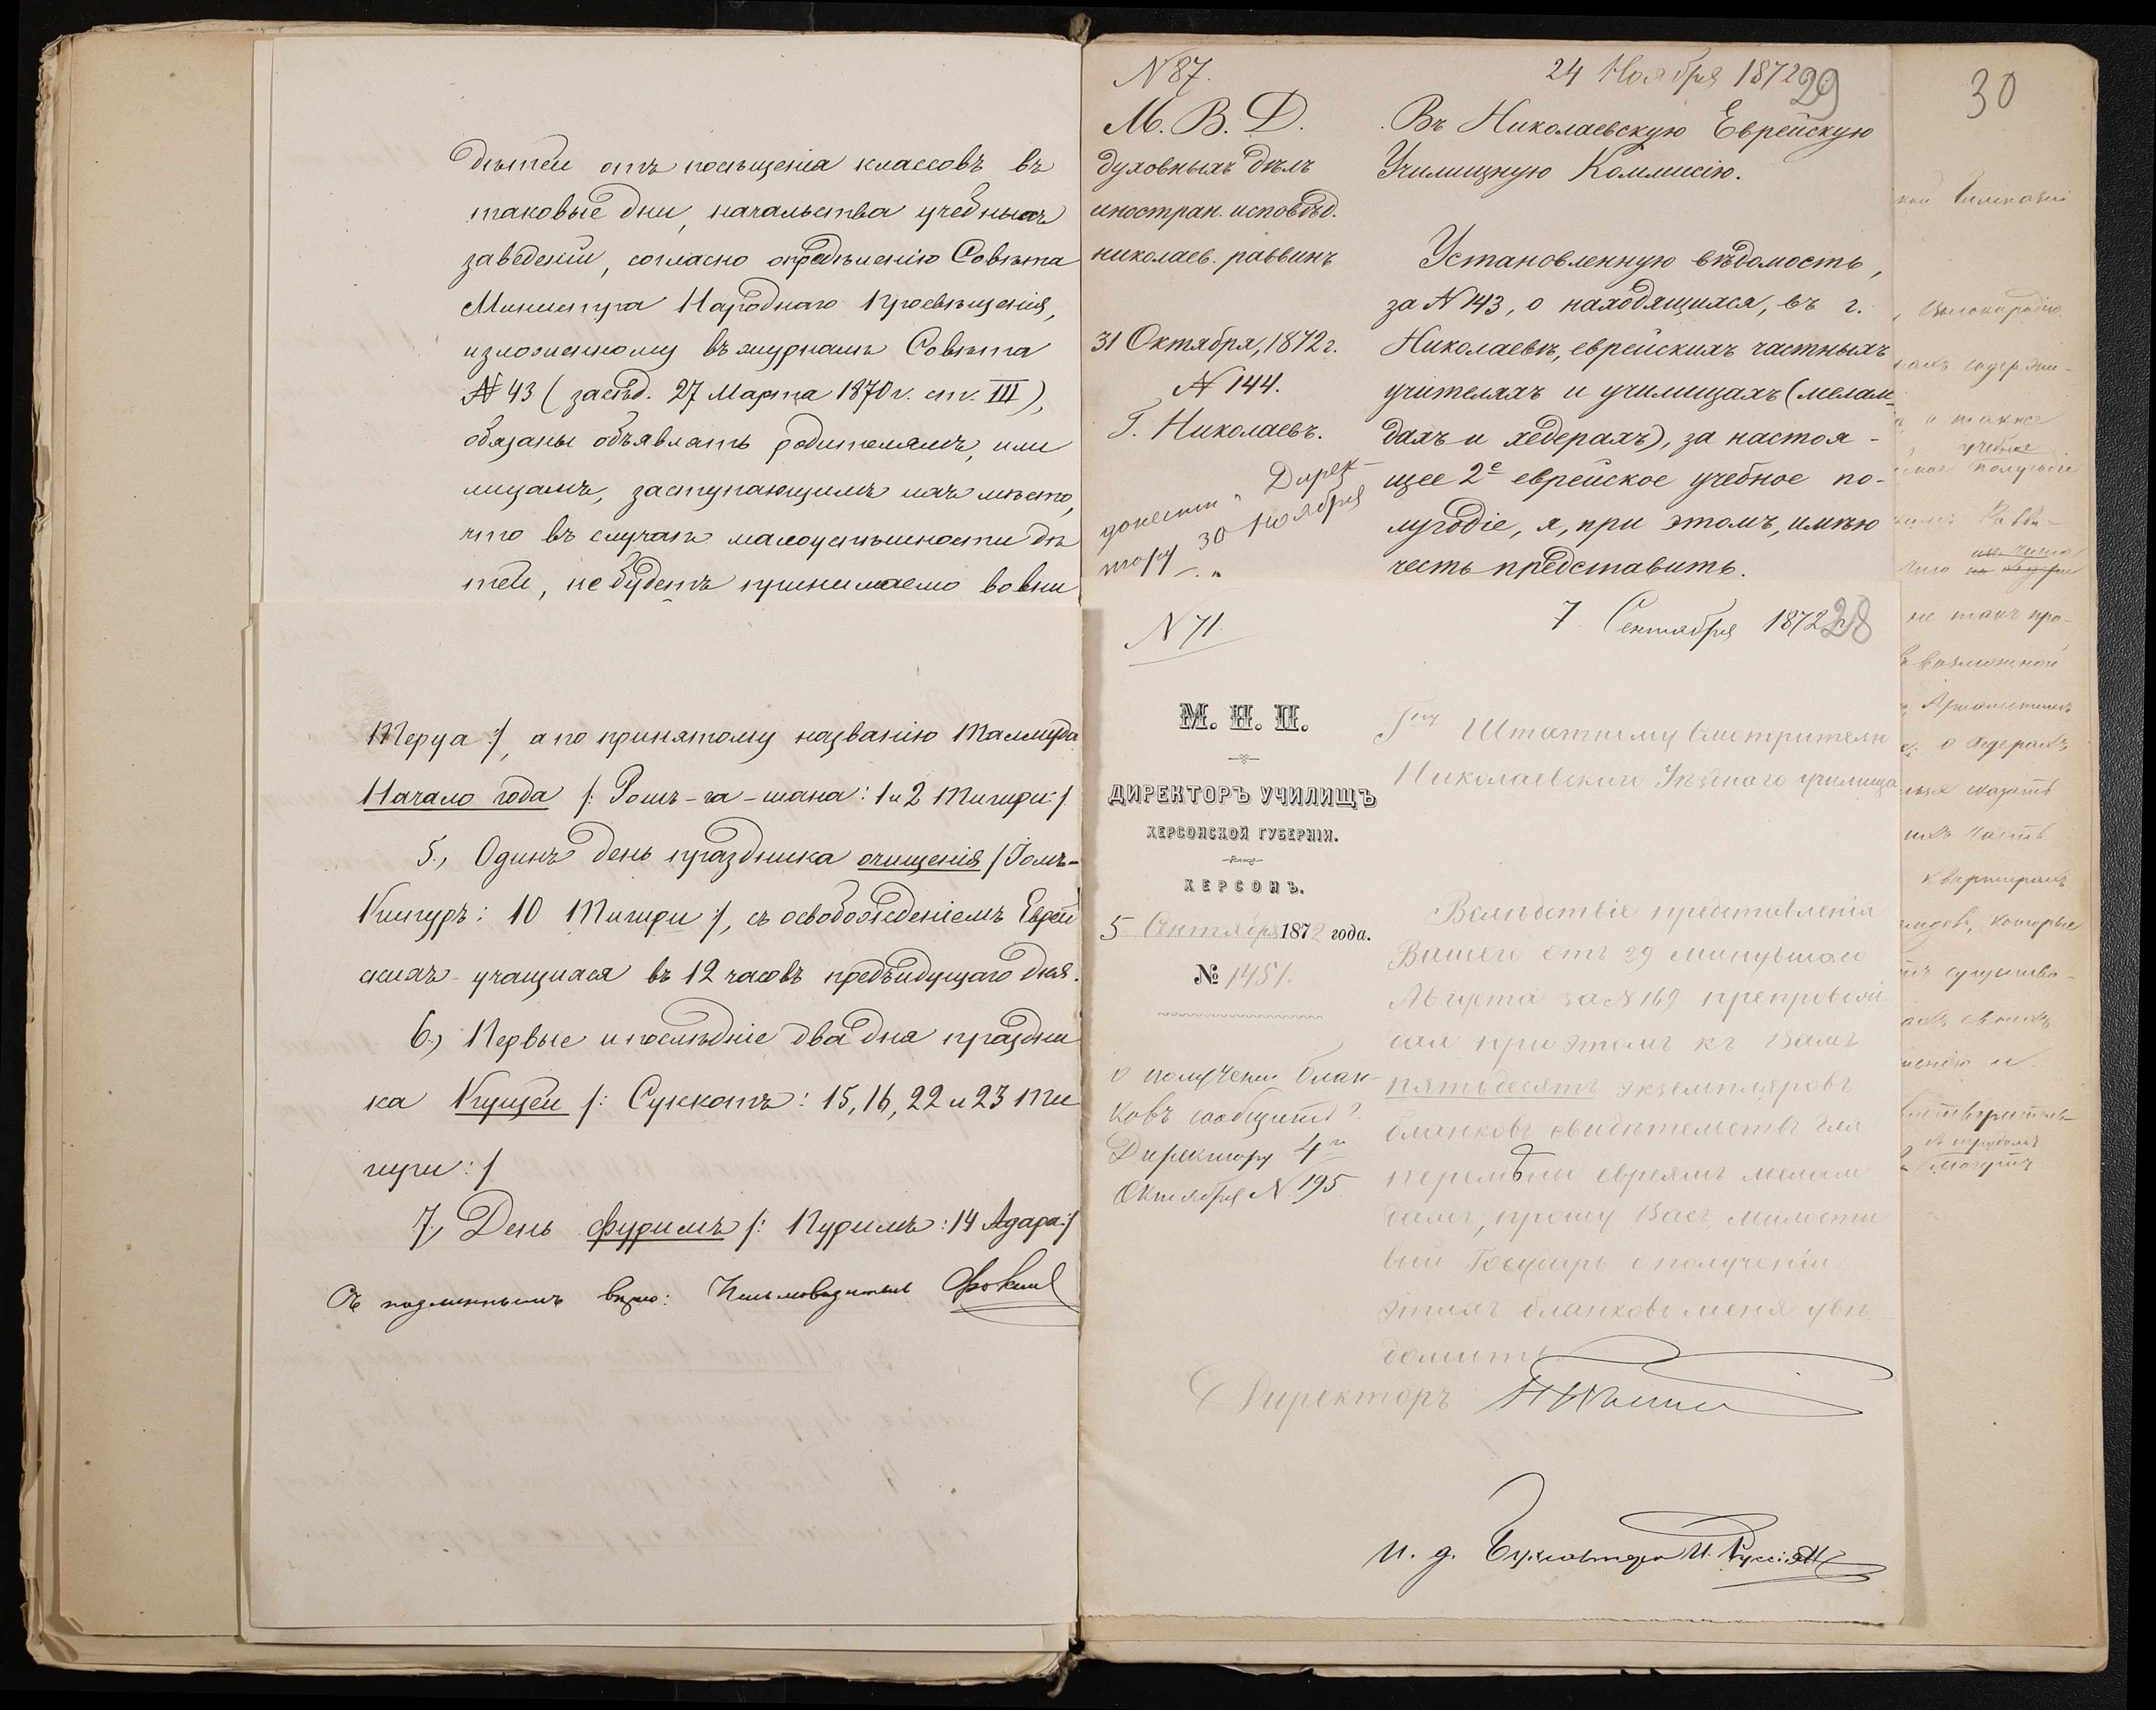 дѣтей отъ посѣщенія классовъ въ
таковые дни, начальства учебныхъ
заведеній, согласно опредѣленію Совѣта
Министра Народнаго Просвѣщенія,
изложенному въ журналѣ Совѣта
№ 43 (засѣд. 27 Марта 1870 г. ст. III),
обязаны объявлять родителямъ, или
лицамъ, заступающимъ ихъ мѣсто,
что въ случаѣ малоуспѣшности дѣ
тей, не будетъ принимаемо во вни
Теруа :/, а по принятому названію Талмуда
Начало года /: Рошъ-га-шана: 1 и 2 Тишри :/
5., Одинъ день праздника очищенія /: Іомъ-
Кипуръ: 10 Тишри :/, съ освобожденіемъ Еврей
скихъ учащихся въ 12 часовъ предъидущаго дня.
6., Первые и послѣдніе два дня праздни
ка Кущей /: Суккотъ: 15, 16, 22 и 23 Ти
шри :/
7., День Фуримъ /: Пуримъ: 14 Адара :/
Съ подлиннымъ вѣрно: Письмоводитель
N 87.
24 Ноября 1872
29
М. В. Д.
духовныхъ дѣлъ
иностран. исповѣд.
николаев. раввинъ
31 Октября, 1872 г.
N 144.
Г. Николаевъ.
донести г. Дирек-
тору 30 Ноября
Въ Николаевскую Еврейскую
Училищную Коммисію.
Установленную вѣдомость,
за N 143, о находящихся, въ г.
Николаевѣ, еврейскихъ частныхъ
учителяхъ и училищахъ (мелам-
дахъ и хедерахъ), за настоя-
щее 2е еврейское учебное по-
лугодіе, я, при этомъ, имѣю
честь представить.
N 71.
7 Сентября 1872
28
М. Н. П.
ДИРЕКТОРЪ УЧИЛИЩЪ
ХЕРСОНСКОЙ ГУБЕРНІИ.
ХЕРСОНЪ.
5 Сентября 1872 года.
№ 1451.
о полученіи блан-
ковъ сообщить г.
Директору 4го
Октября N 195
Гну Штатному Смотрителю
Николаевскаго Уѣзднаго училища
Вслѣдствіе представленія
Вашего отъ 29 минувшаго
Августа за N 169 препровож
дая при этомъ къ Вамъ
пятьдесятъ экземпляровъ
бланковъ свидѣтельствъ для
перемѣны евреямъ мелам
дамъ, прошу Васъ Милости
вый Государь о полученіи
этихъ бланковъ меня увѣ
домить.
Директоръ
И. д. Бухгалтера И.
30